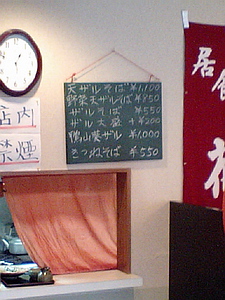 天ザルそば ¥1,100
野菜天ザルそば ¥850
ザルそば ¥550
ザル大盛 +¥200
鴨山菜ザル ¥1,000
きつねそば ¥550
店内
禁煙
居